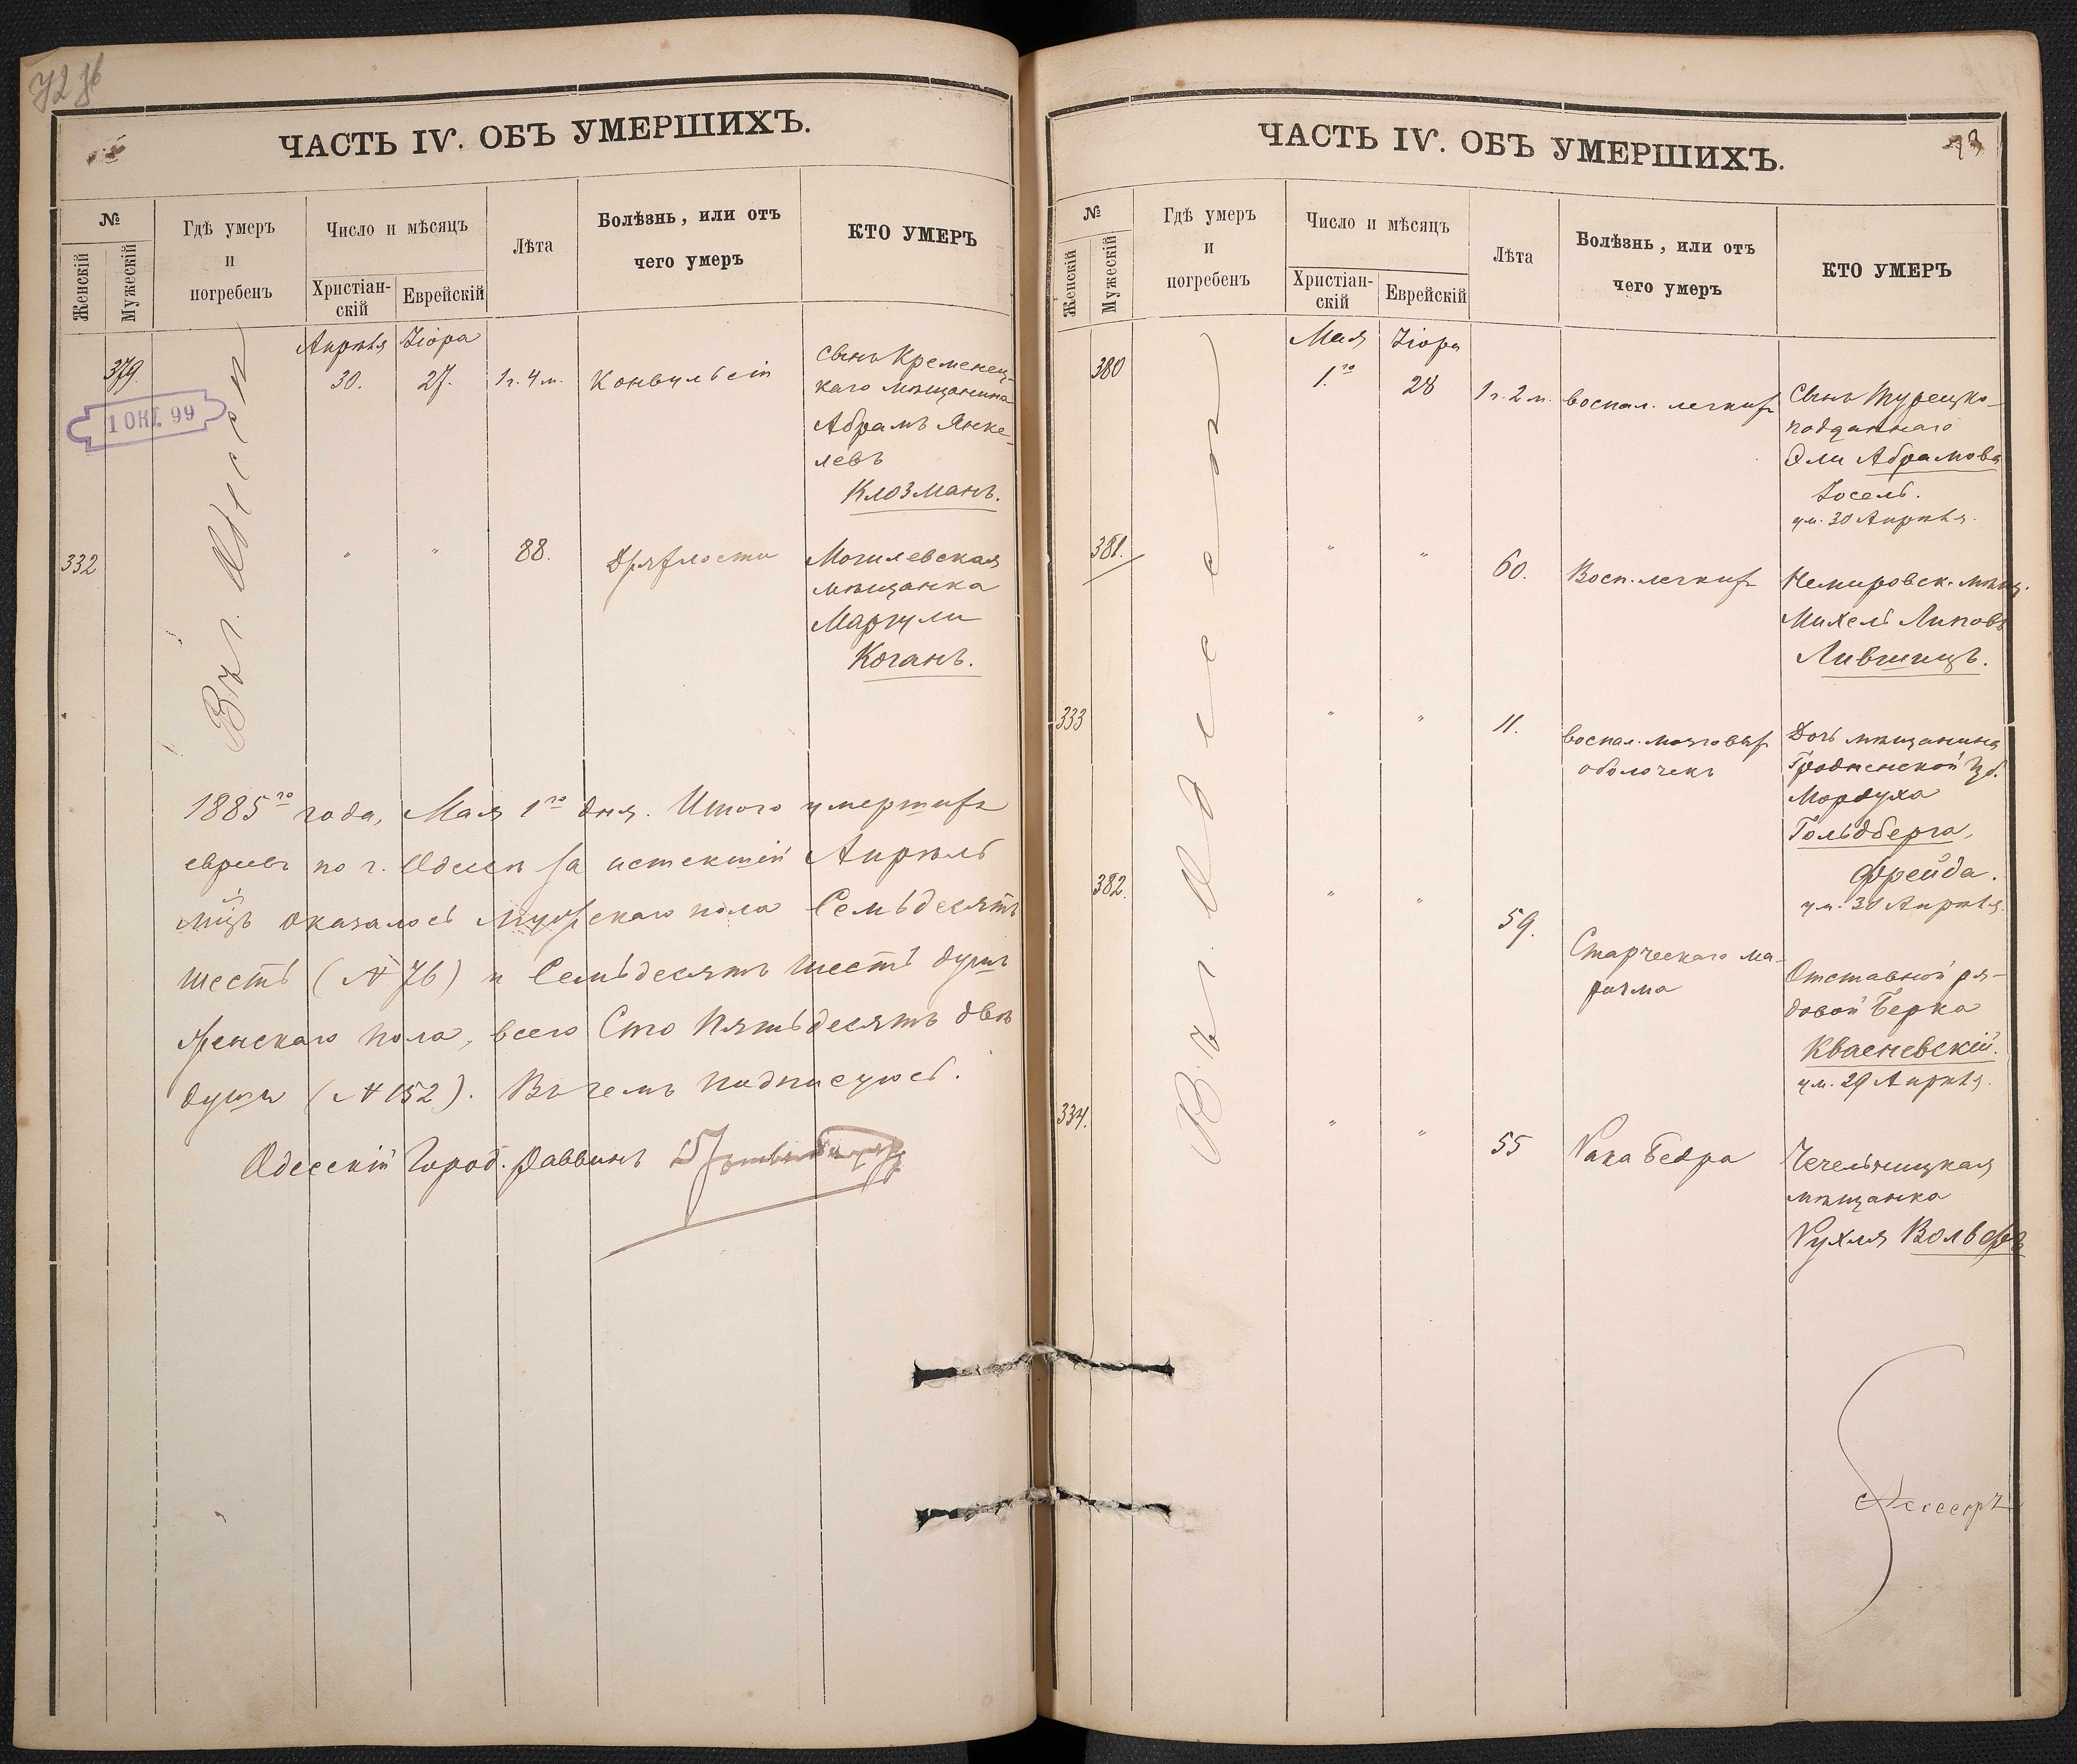 ЧАСТЬ IV. ОБЪ УМЕРШИХЪ.
№
Женскій
Мужескій
Гдѣ умеръ
и
погребенъ
Число и мѣсяцъ
Христіан-
скій
Еврейскій
Лѣта
Болѣзнь, или отъ
чего умеръ
КТО УМЕРЪ
Въ г. Одессѣ
379.
1 ОКТ. 99
Апрѣля
30.
Ііора
27.
1 г. 4 м.
Конвульсіи
Сынъ Кременец-
каго мѣщанина
Абрамъ Янке-
левъ
Клозманъ.
332
"
"
88.
Дряхлости
Могилевская
мѣщанка
Маргули
Коганъ.
1885го года, Мая 1го дня. Итого умершихъ
евреевъ по г. Одессѣ за истекшій Апрѣль
мцъ оказалось мужскаго пола Семьдесятъ
шесть (№ 76) и Семьдесятъ шесть душъ
женскаго пола, всего Сто Пятьдесятъ двѣ
души (№ 152). Въ чемъ подписуюсь.
Одесскій Город. Раввинъ
ЧАСТЬ IV. ОБЪ УМЕРШИХЪ.
№
Женскій
Мужескій
Гдѣ умеръ
и
погребенъ
Число и мѣсяцъ
Христіан-
скій
Еврейскій
Лѣта
Болѣзнь, или отъ
чего умеръ
КТО УМЕРЪ
Въ г. Одессѣ
380
Мая
1.го
Ііора
28
1 г. 2 м.
воспал. легкихъ
Сынъ Турецко-
подданнаго
Эли Абрамова
Іосель.
ум. 30 Апрѣля.
381.
"
"
60.
Восп. легкихъ
Немировск. мѣщ.
Михель Липовъ
Лившицъ.
333
"
"
11.
воспал. мозговыхъ
оболочекъ
Дочь мѣщанина
Гродненской губ.
Мордуха
Гольдберга,
Фрейда.
ум. 30 Апрѣля.
382.
"
"
59.
Старческаго ма-
разма
Отставной ря-
довой Берка
Квасневскій.
ум. 29 Апрѣля.
334.
"
"
55
Рака бедра
Чечельницкая
мѣщанка
Рухля Вольферъ